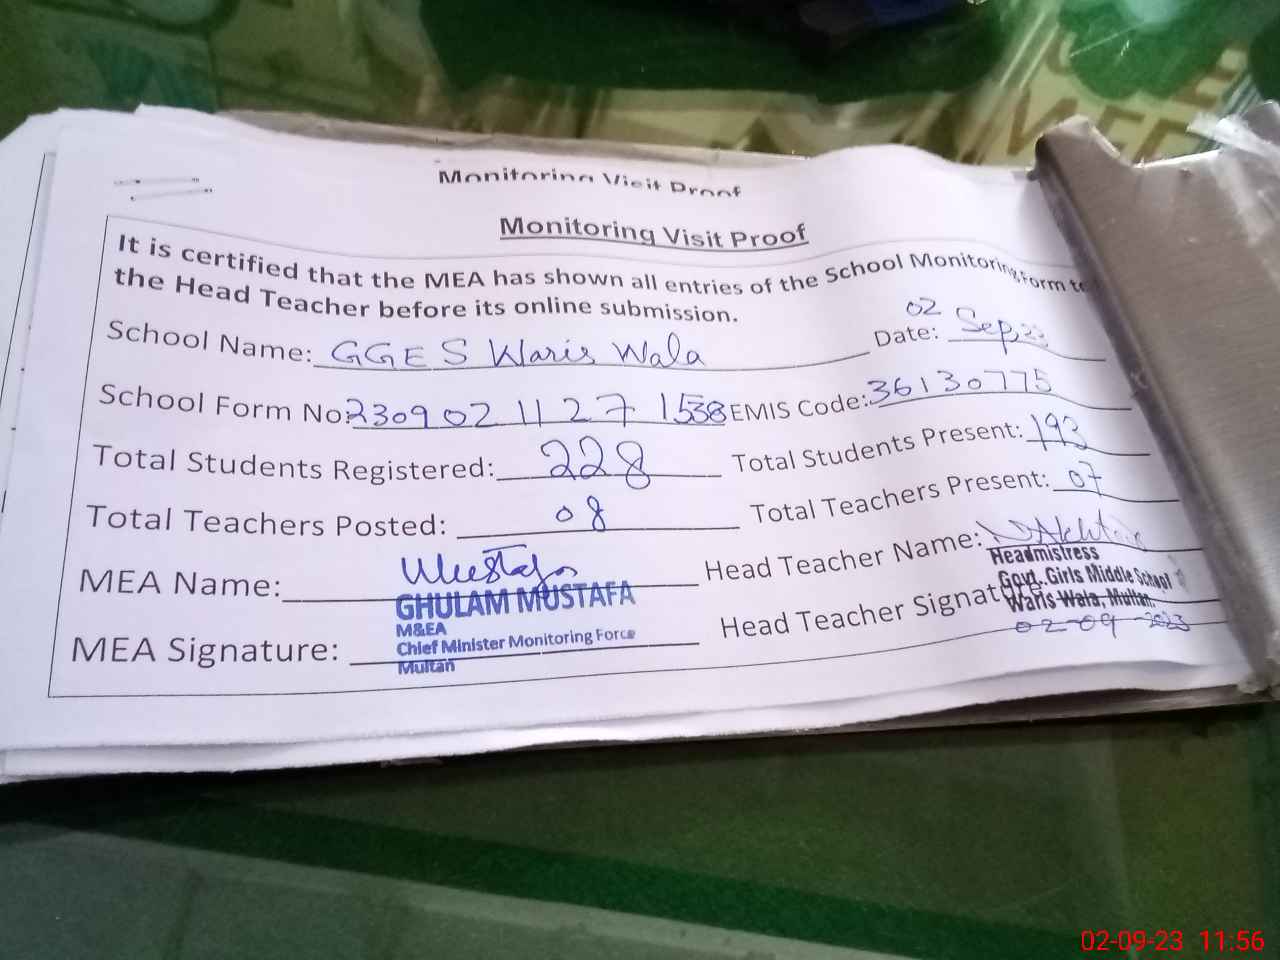 Monitoring Visit Proof
Monitoring Visit Proof
It is certified that the MEA has shown all entries of the School Monitoring Form to
the Head Teacher before its online submission.
School Name: GGES Waris Wala Date: 02 Sep, 23
School Form No: 2309021127 1538 EMIS Code: 36130775
Total Students Registered: 228 Total Students Present: 193
Total Teachers Posted: 08 Total Teachers Present: 07
MEA Name: Mustafa Head Teacher Name: N Akhtar
GHULAM MUSTAFA
M&EA
Chief Minister Monitoring Force
Multan
MEA Signature: Head Teacher Signature:
Headmistress
Govt. Girls Middle School
Waris Wala, Multan.
02-09-2023
02-09-23 11:56